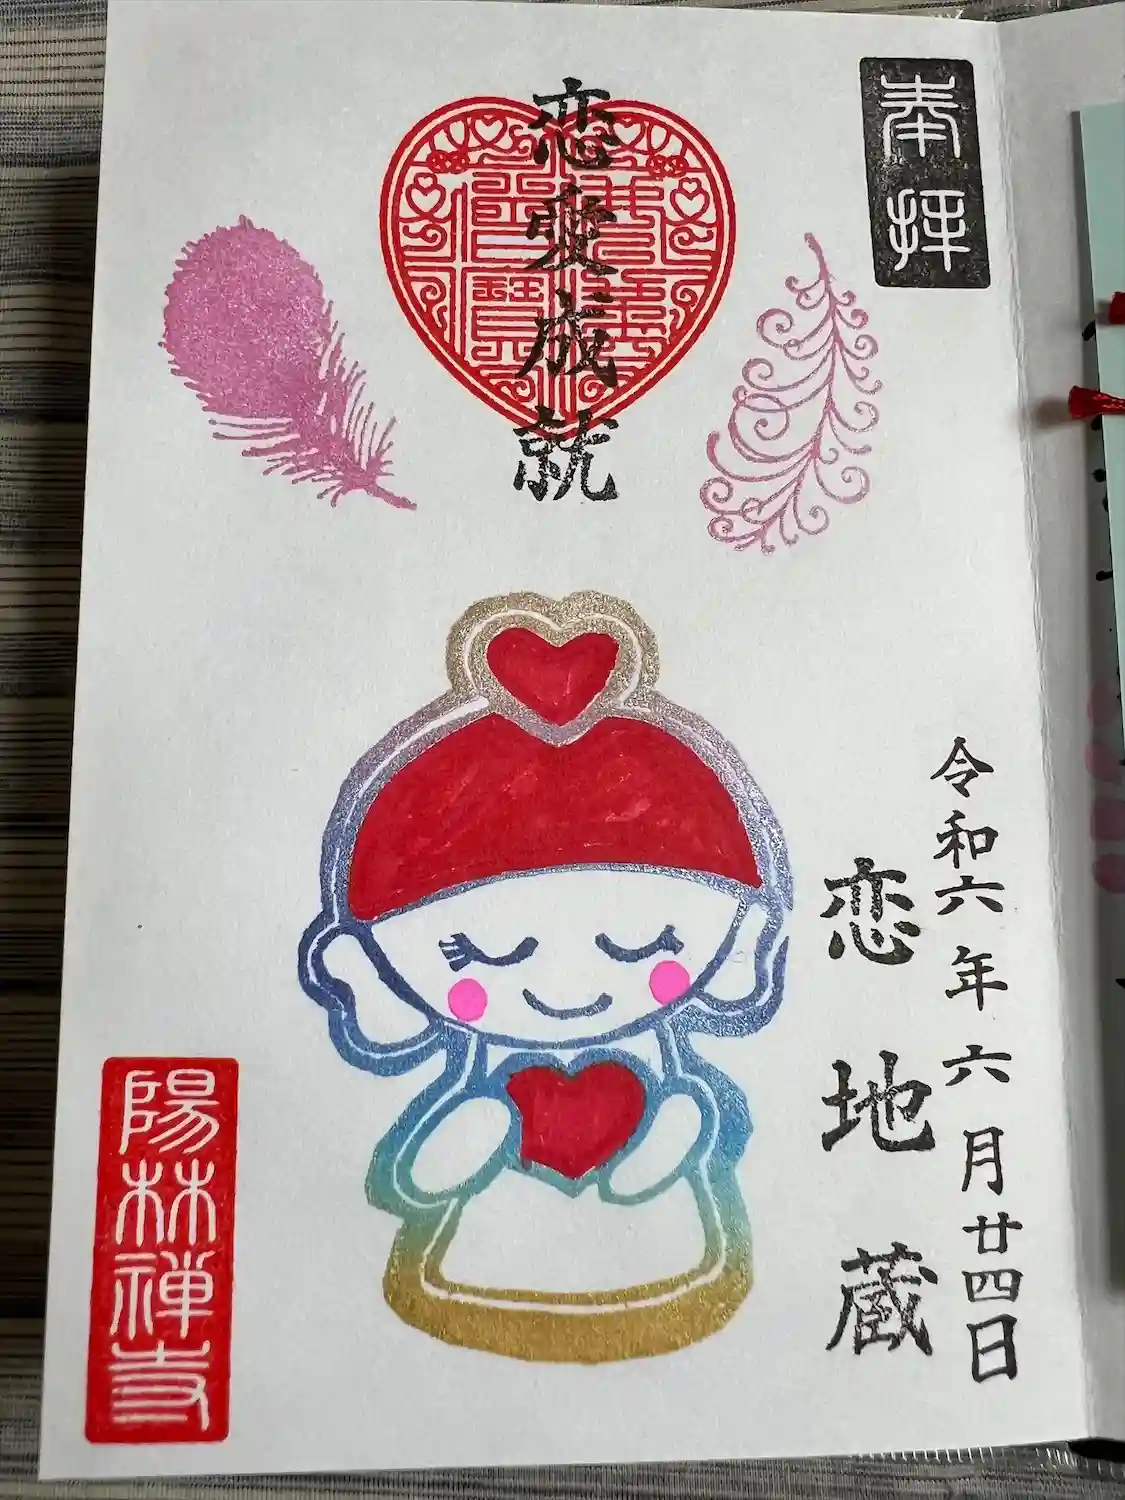 奉拝
恋愛成就
令和六年六月廿四日
恋地蔵
陽林禅寺